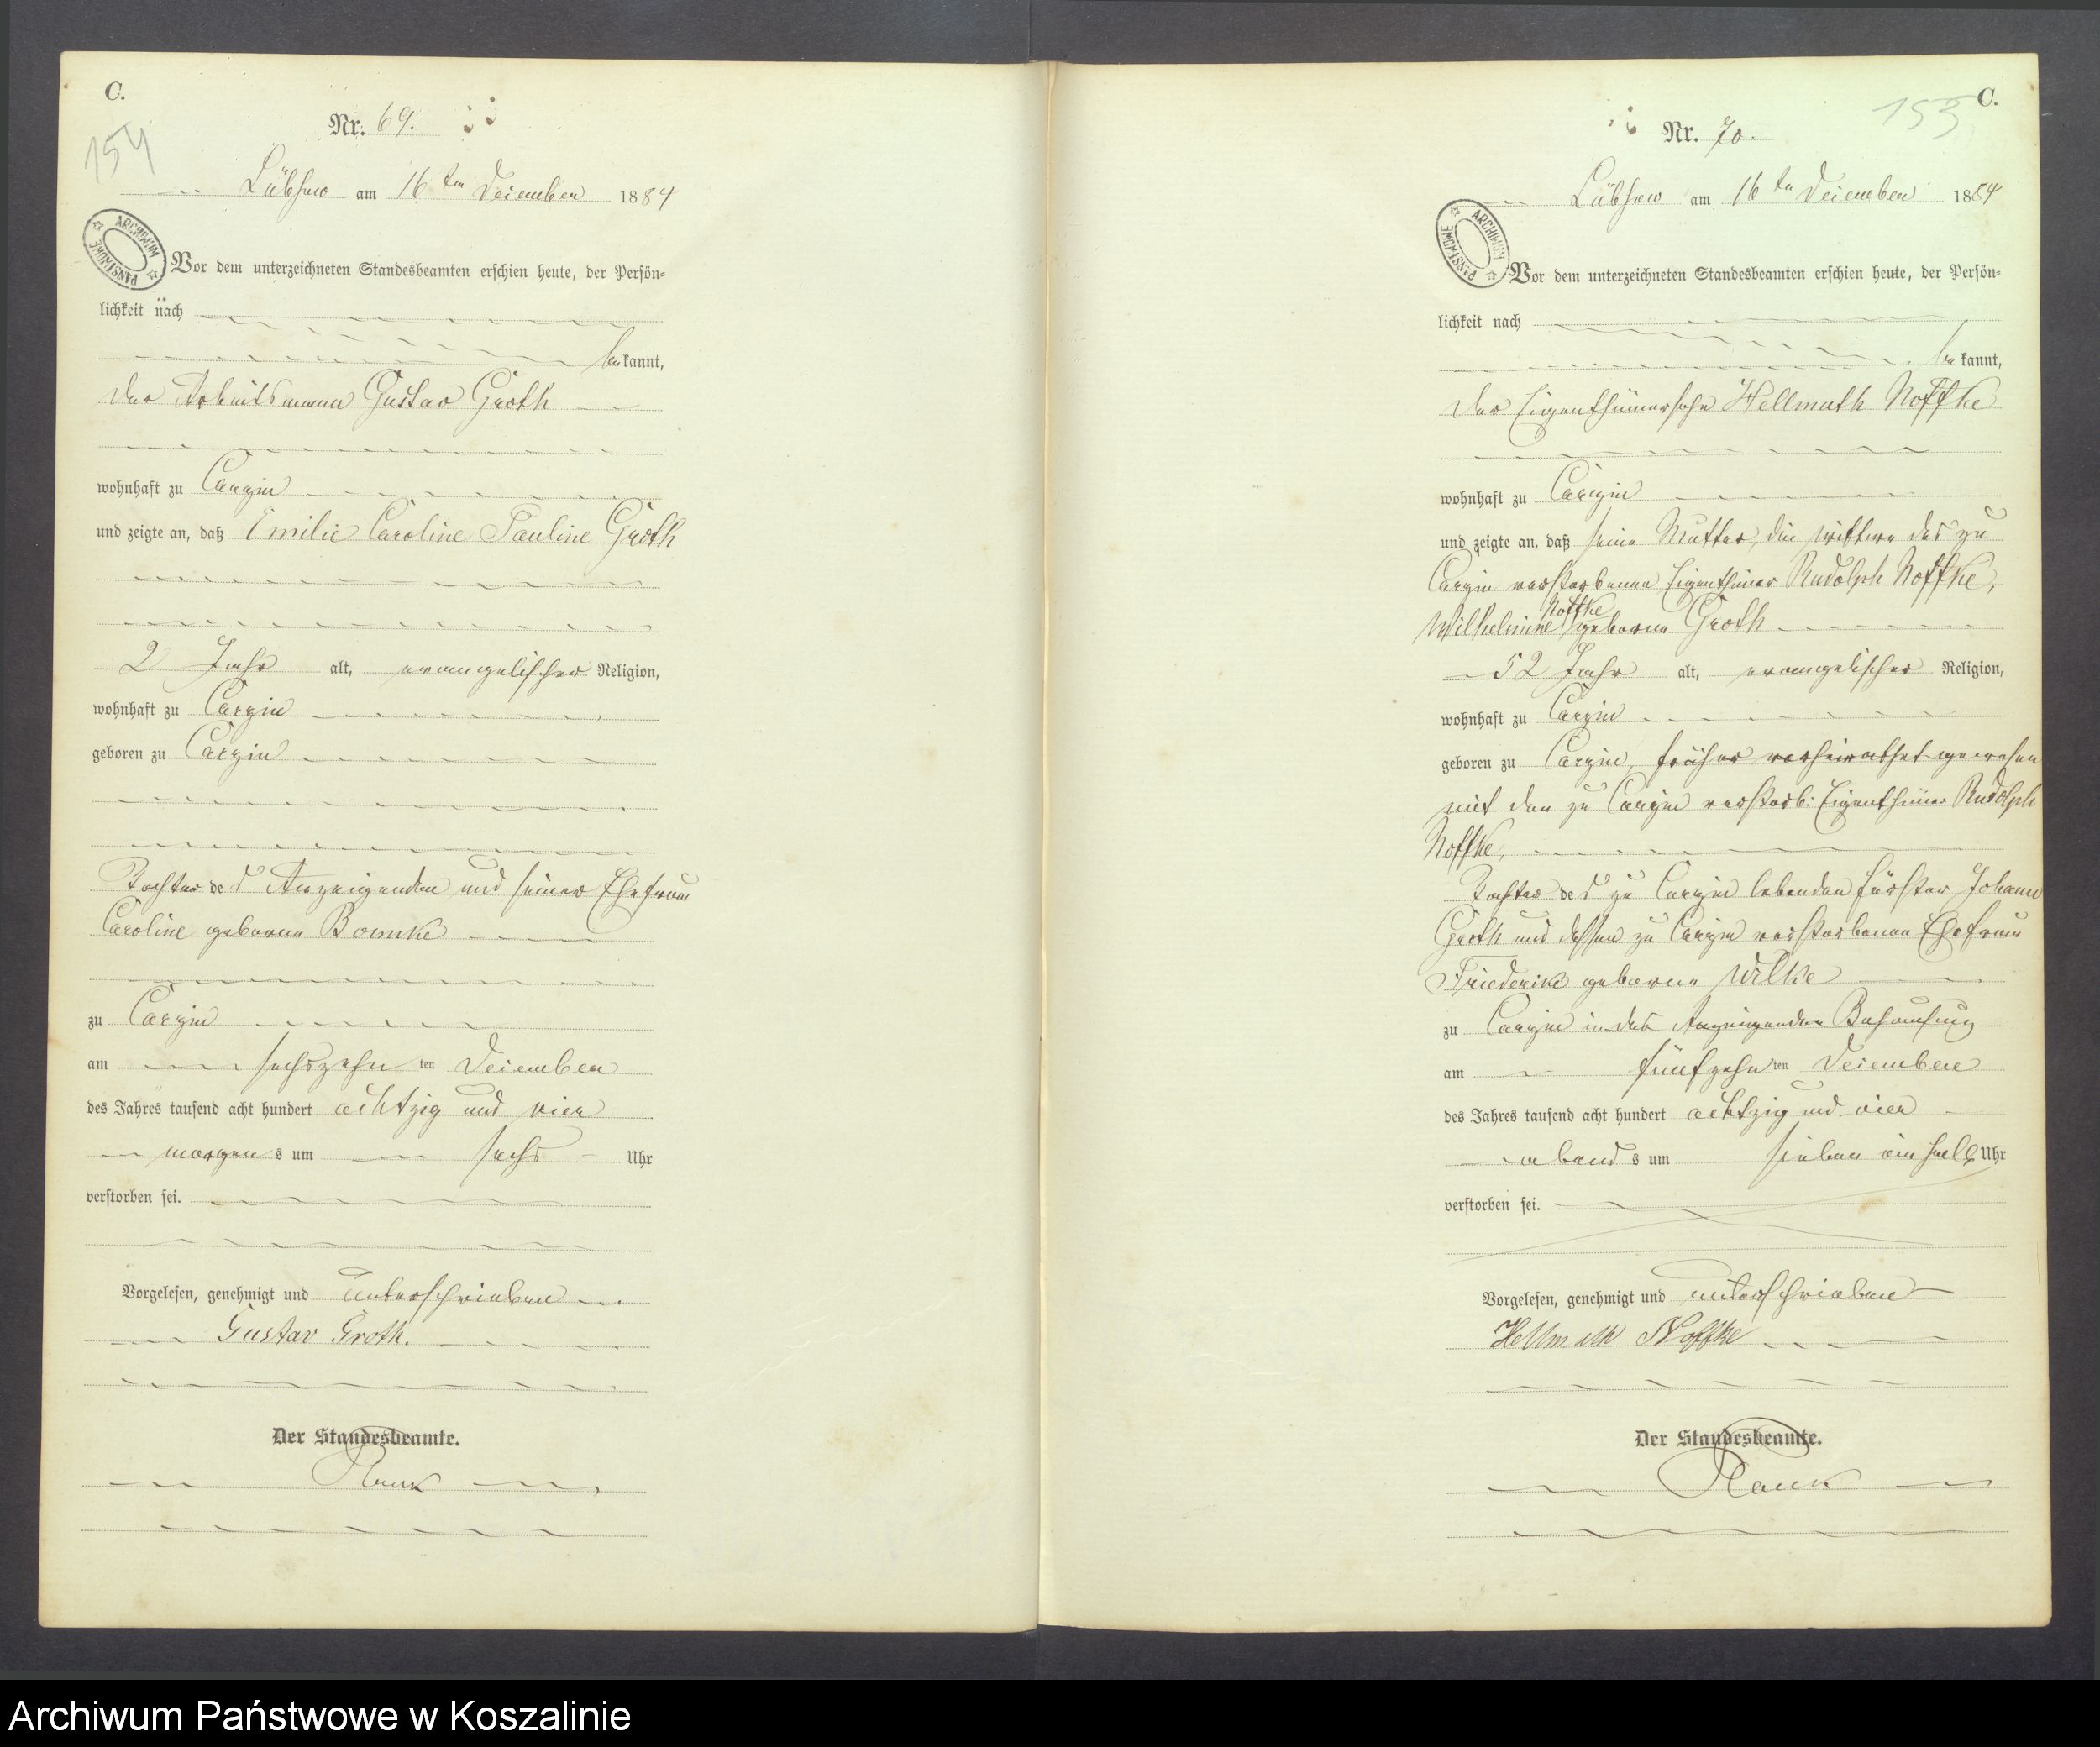 C.
Nr. 69.
154
Lübsow am 16ten Deiember 1884
ARCHIWUM PAŃSTWOWE
Vor dem unterzeichneten Standesbeamten erschien heute, der Persön=
lichkeit nach
be kannt,
der Arbeitsmann Gustav Groth
wohnhaft zu Carzin
und zeigte an, daß Emilie Caroline Pauline Groth
2 Jahr alt, evangelischer Religion,
wohnhaft zu Carzin
geboren zu Carzin
Tochter des Anzeigenden und seiner Ehefrau
Caroline geborene
zu Carzin
am sechszehn ten Deiember
des Jahres tausend acht hundert achtzig und vier
morgen s um sechs Uhr
verstorben sei.
Vorgelesen, genehmigt und unterschrieben
Gustav Groth.
Der Standesbeamte.
C.
155
Nr. 70.
Lübsow am 16ten Deiember 1884
ARCHIWUM PAŃSTWOWE
Vor dem unterzeichneten Standesbeamten erschien heute, der Persön=
lichkeit nach
be kannt,
der Eigenthümersohn Hellmuth Noffke
wohnhaft zu Carzin
und zeigte an, daß seine Mutter, die Wittwe des zu
Carzin verstorbenen Eigenthümer Rudolph Noffke,
Noffke
Wilhelmine geborene Groth
52 Jahr alt, evangelischer Religion,
wohnhaft zu Carzin
geboren zu Carzin, früher verheirathet gewesen
mit dem zu Carzin verstorb: Eigenthümer Rudolph
Noffke,
Tochter des zu Carzin lebenden Förster Johann
Groth und dessen zu Carzin verstorbenen Ehefrau
Friederike geborene Wilke
zu Carzin in des Anzeigenden Behausung
am fünfzehn ten Deiember
des Jahres tausend acht hundert achtzig und vier
abend s um sieben ein halb Uhr
verstorben sei.
Vorgelesen, genehmigt und unterschrieben
Hellmuth Noffke
Der Standesbeamte.
Archiwum Państwowe w Koszalinie